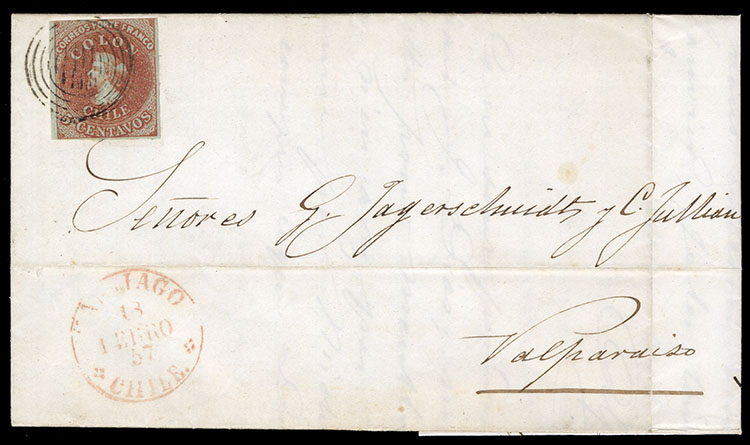 CORREOS PORTE FRANCO
COLON
CHILE
5 CENTAVOS
Señores G. Jagerschmidt y C. Jullian
SANTIAGO
13
ENERO
57
CHILE
Valparaiso